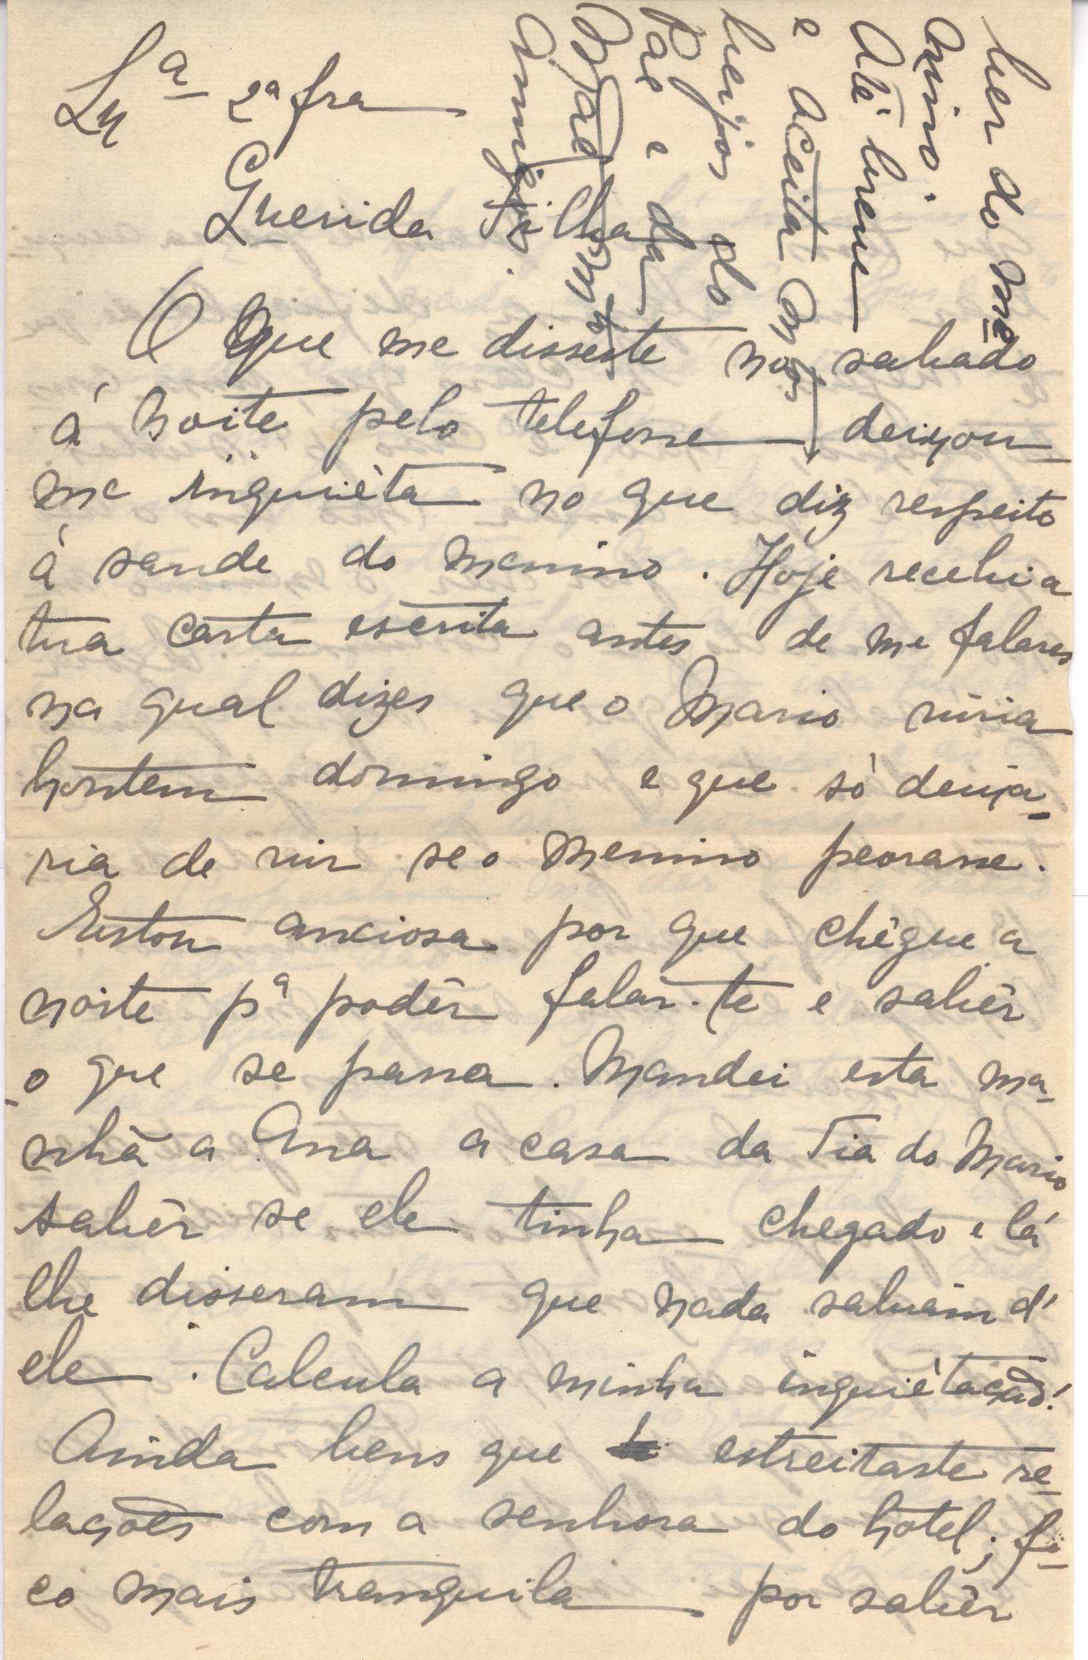 Lxª 2ª fra
Querida Filha
O que me disseste no sabado
á noite pelo telefone deixou-
me inquiéta no que diz respeito
á saude do menino. Hoje recebi a
tua carta escrita antes de me falares
na qual dizes que o Mario viria
hontem domingo e que só deixa-
ria de vir se o menino peorasse.
Estou anciosa por que chêgue a
noite pª podêr falar-te e sabêr
o que se passa. Mandei esta ma-
nhã a Ana a casa da Tia do Mario
sabêr se ele tinha chegado e lá
lhe disseram que nada sabiam d'
ele. Calcula a minha inquiétação!
Ainda bem que estreitaste re-
lações com a senhora do hotel; fi-
co mais tranquila por sabêr
ber do me-
nino.
Até breve
e aceita mtos
beijos do
Pae e da
Mãe mto
amigos.